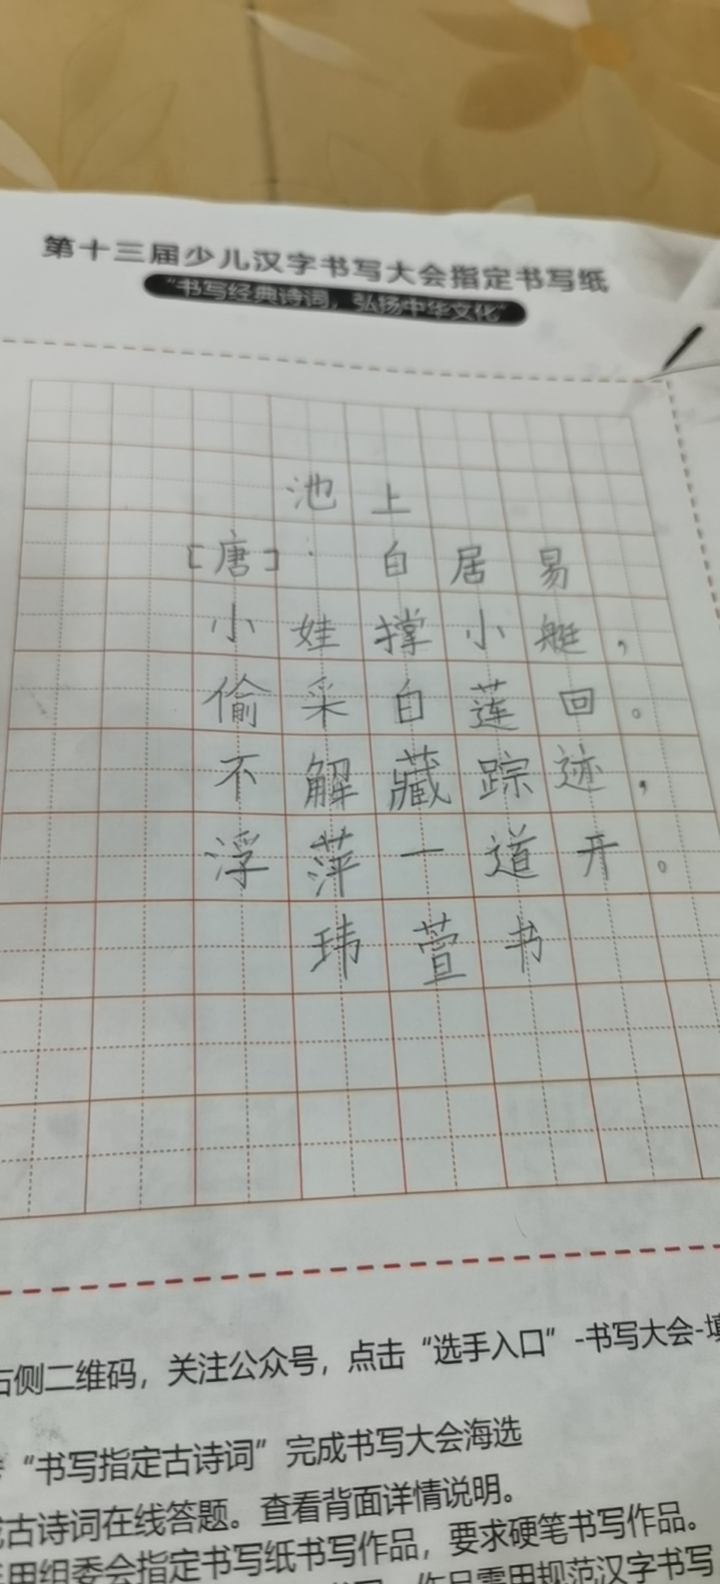 第十三届少儿汉字书写大会指定书写纸
“书写经典诗词，弘扬中华文化”
池上
[唐]· 白居易
小娃撑小艇，
偷采白莲回。
不解藏踪迹，
浮萍一道开。
玮萱书
右侧二维码，关注公众号，点击“选手入口”-书写大会-填
“书写指定古诗词”完成书写大会海选
古诗词在线答题。查看背面详情说明。
用组委会指定书写纸书写作品，要求硬笔书写作品。
作品需用规范汉字书写